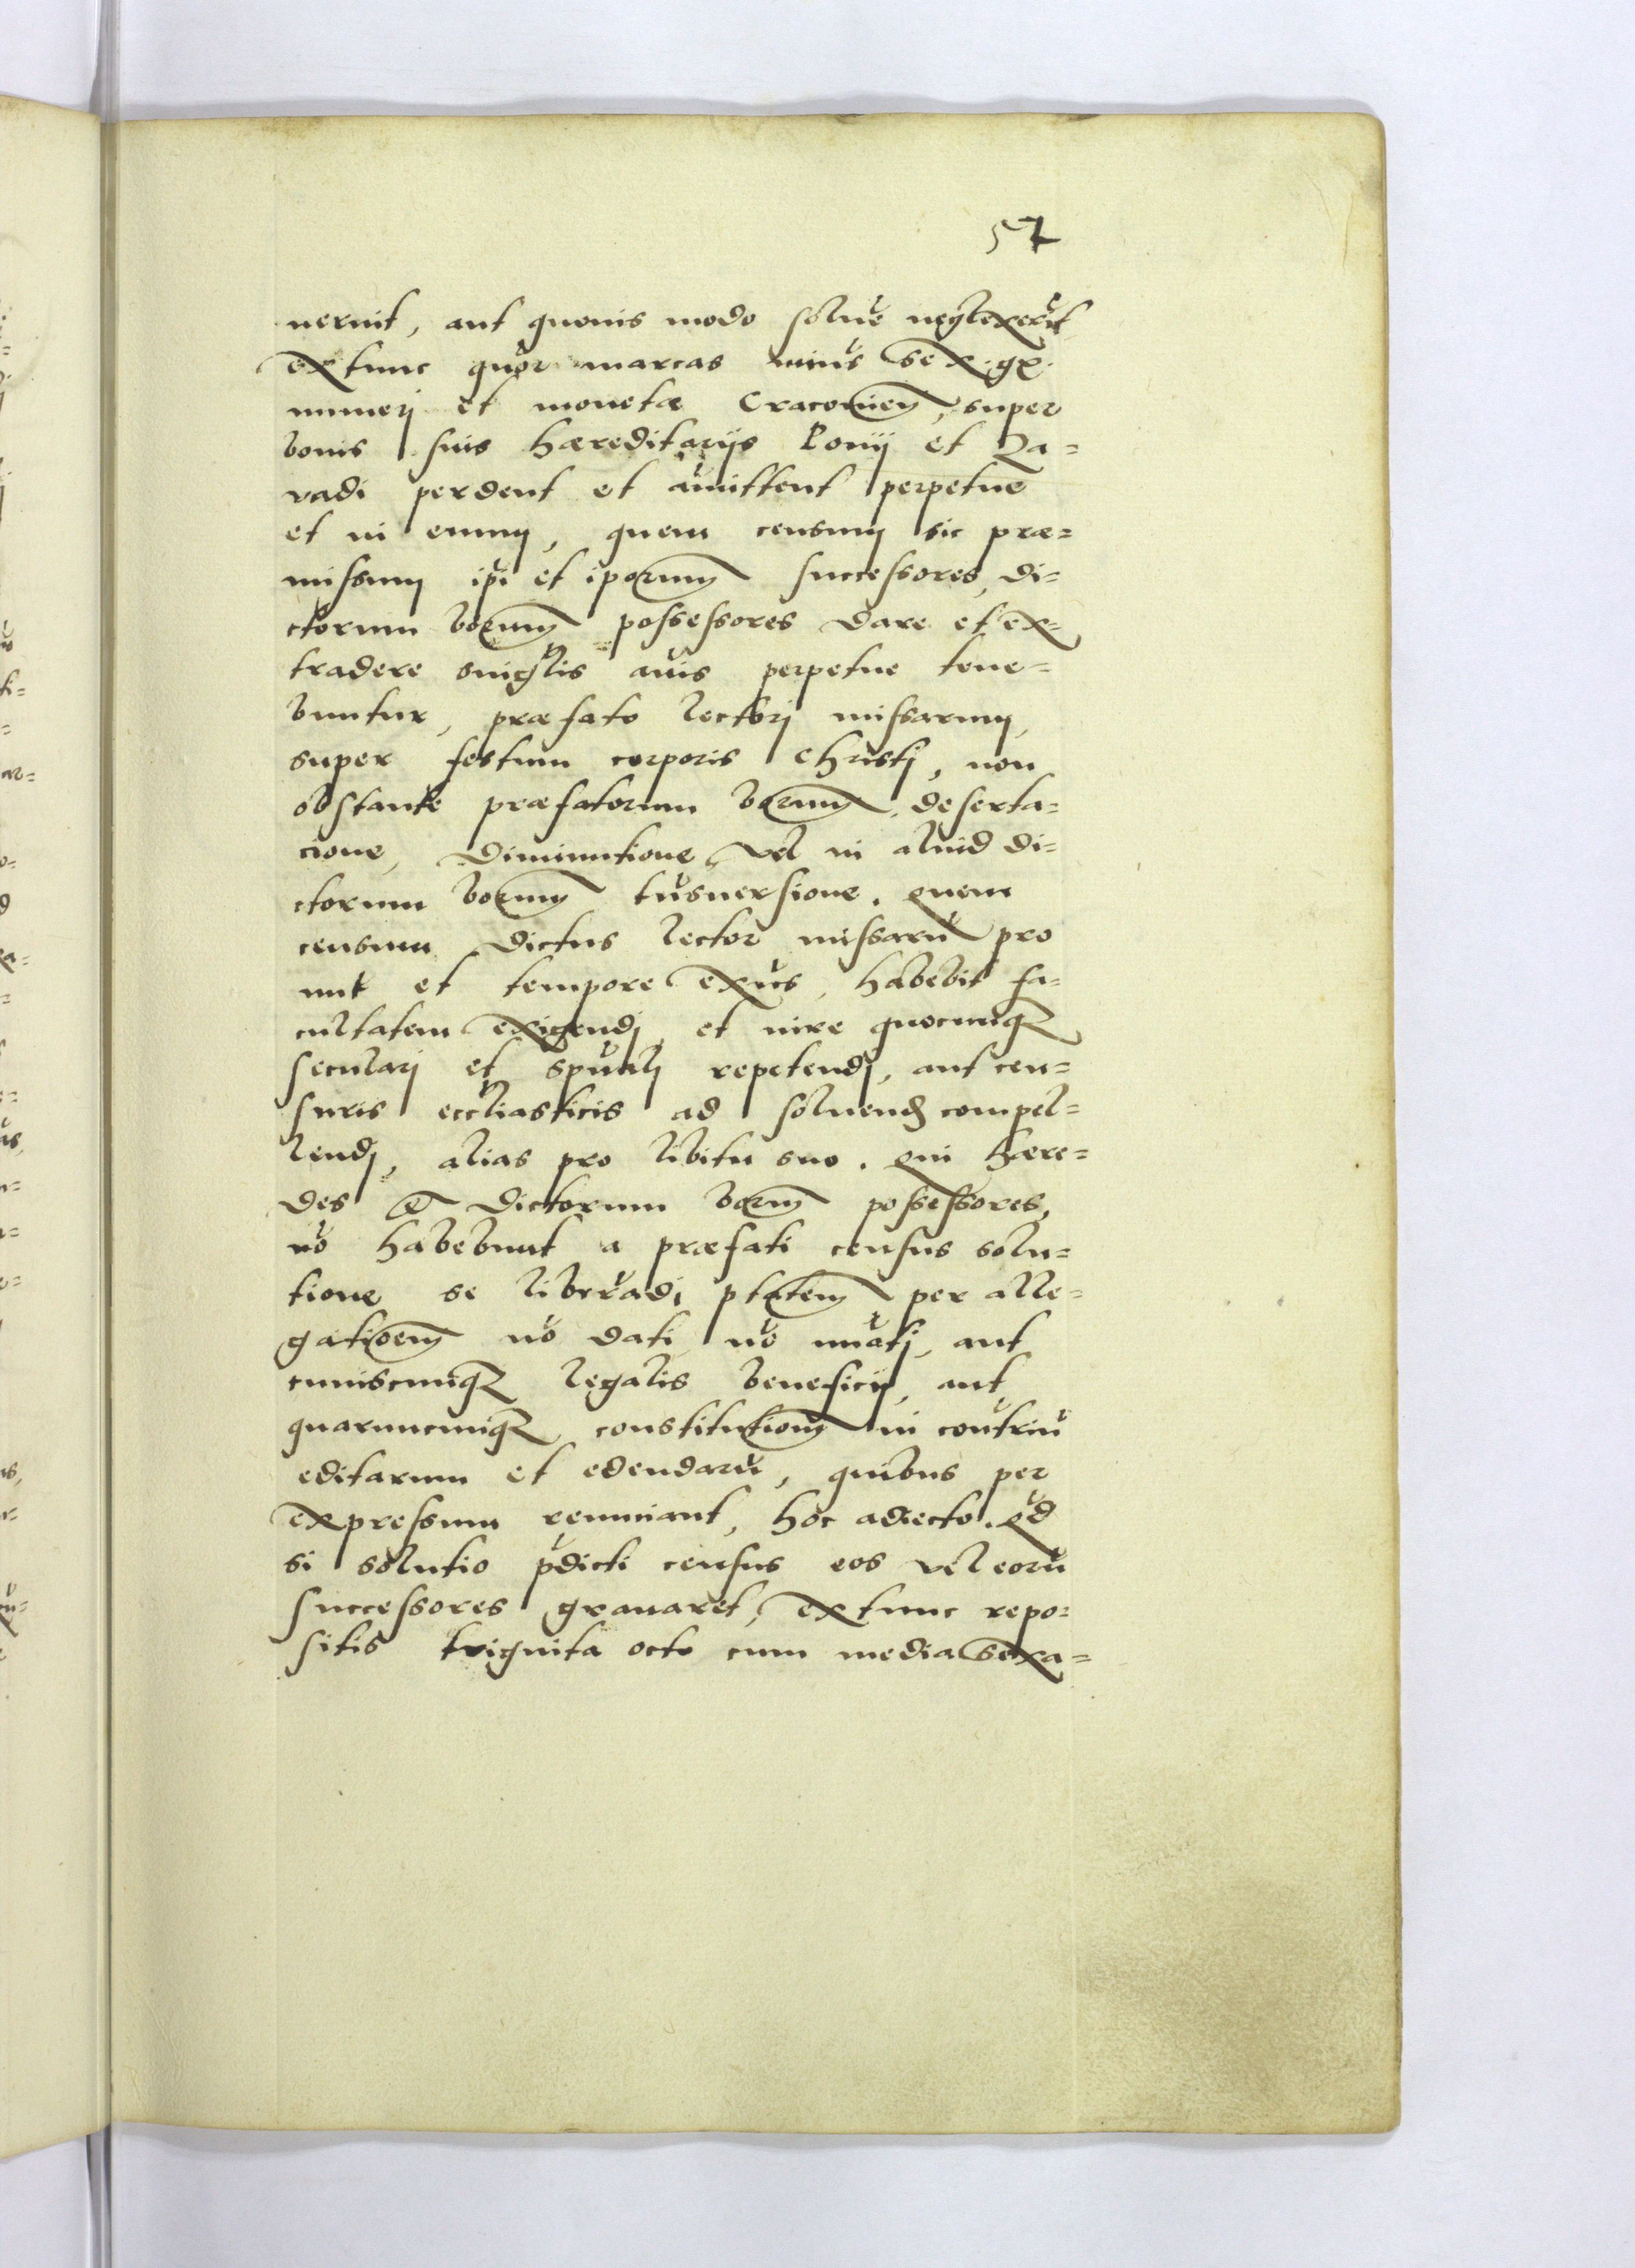 57
nerint, aut quouis modo soluē neglexerūt
extunc quōr marcas minūs sex. gr.
numerj et monetæ Cracouien, super
bonis suis hæreditarijs Lonij et Za=
vadi perdent et amittent perpetue
et in euum, quem censum sic præ=
missum ipi et iporum successores, di=
ctorum borum possessores dare et ex=
tradere singlis anis perpetue tene=
buntur, præfato lectorj missarum,
super festum corporis Christj, non
obstante præfatorum borum deserta=
cione, diminutione, vel in aliud di=
ctorum borum trāsuersione. Quem
censum dictus lector missarū pro
nunc et tempore exūs, habebit fa=
cultatem exigendj, et iure quocunq
secularj et spualj repetendj, aut cen=
suris eccliasticis ad soluend compel=
lendj, alias pro libitu suo. Qui hære=
des et dictorum borum possessores,
nō habebunt a præfati census solu=
tione se liberādi ptatem per alle=
gationem nō dati nō nūatj, aut
cuiuscunq legalis beneficij, aut
quaruncunq constitutionum in contriū
editarum et edendarū, quibus per
expressum renunciant, hoc adiecto. Qd
si solutio pdicti census eos vel eorū
successores grauaret, extunc repo=
sitis trignita octo cum media sexa=